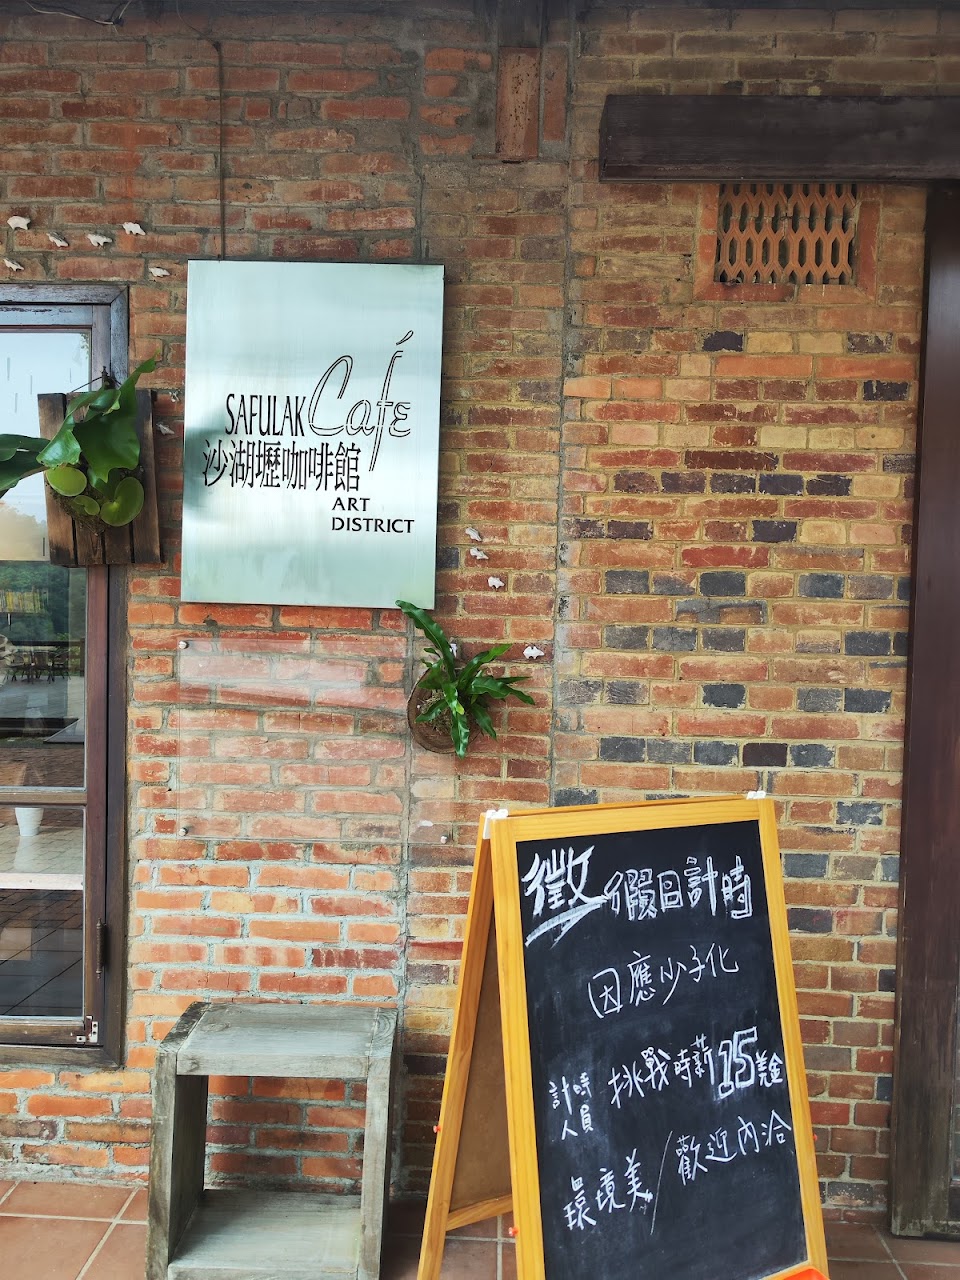 SAFULAK Café
沙湖壢咖啡館
ART
DISTRICT
徵 假日計時
因應少子化
計時人員 挑戰時薪15美金
環境美/歡迎內洽